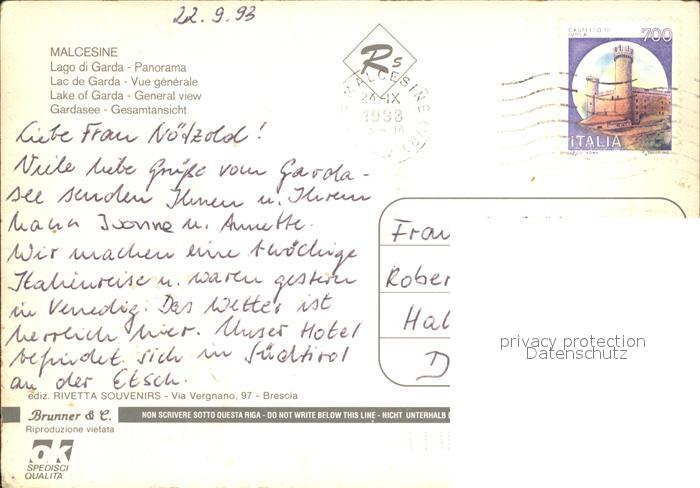 22.9.93
MALCESINE
Lago di Garda - Panorama
Lac de Garda - Vue générale
Lake of Garda - General view
Gardasee - Gesamtansicht
Rs
MALCESINE
24 IX
1993
CASTELLO DI
700
ITALIA
Liebe Frau Nötzold!
Viele liebe Grüße vom Garda-
see senden Ihnen u. Ihrem
Mann Ivonne u. Annette.
Wir machen eine 1wöchige
Italienreise u. waren gestern
in Venedig. Das Wetter ist
herrlich hier. Unser Hotel
befindet sich in Südtirol
an der Etsch.
Frau
Rober
Hal
D
privacy protection
Datenschutz
ediz. RIVETTA SOUVENIRS - Via Vergnano, 97 - Brescia
Brunner & C. NON SCRIVERE SOTTO QUESTA RIGA - DO NOT WRITE BELOW THIS LINE - NICHT UNTERHALB
Riproduzione vietata
ok
SPEDISCI
QUALITA'